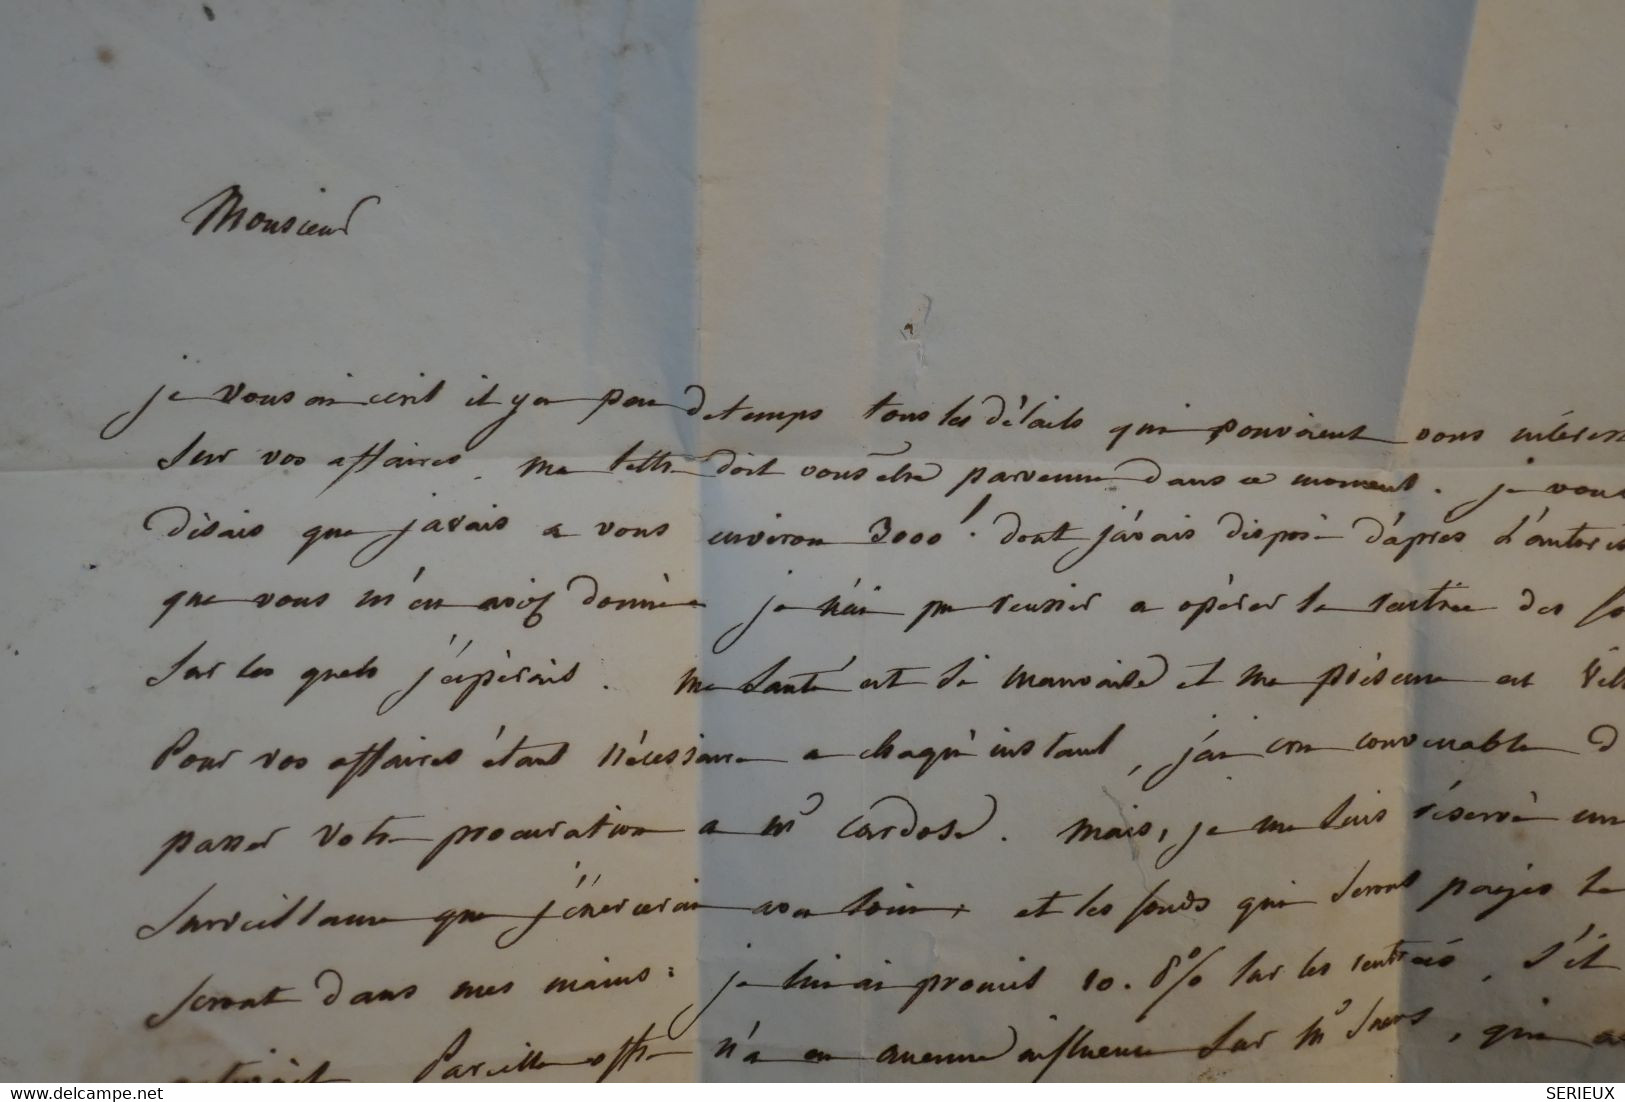 Monsieur
je vous ai écrit il y a peu de temps tous les détails qui pouvoient vous intéress
Sur vos affaires. ma lettre doit vous être parvenue dans ce moment. je vous
disais que j'avais a vous environ 3000f. dont j'avais disposé d'après l'autoris
que vous m'en aviez donnée je n'ai pu reussir a opérer la rentrée des fo
Sur les quels j'éspèrais. ma Santé est Si mauvaise et ma présence est tell
Pour vos affaires étant nécessaire a chaqu'instant, j'ai cru convenable d
passer votre procuration a Mr Cardose. Mais, je me Suis réservé une
Surveillance que j'éxercerai avec Soin, et les fonds qui Seront payés le
Seront dans mes mains: je lui ai promis 10. p% Sur les rentrées. S'il
Pareille offre n'a eu aucune influence Sur Mr, qui a
delcampe.net
SERIEUX